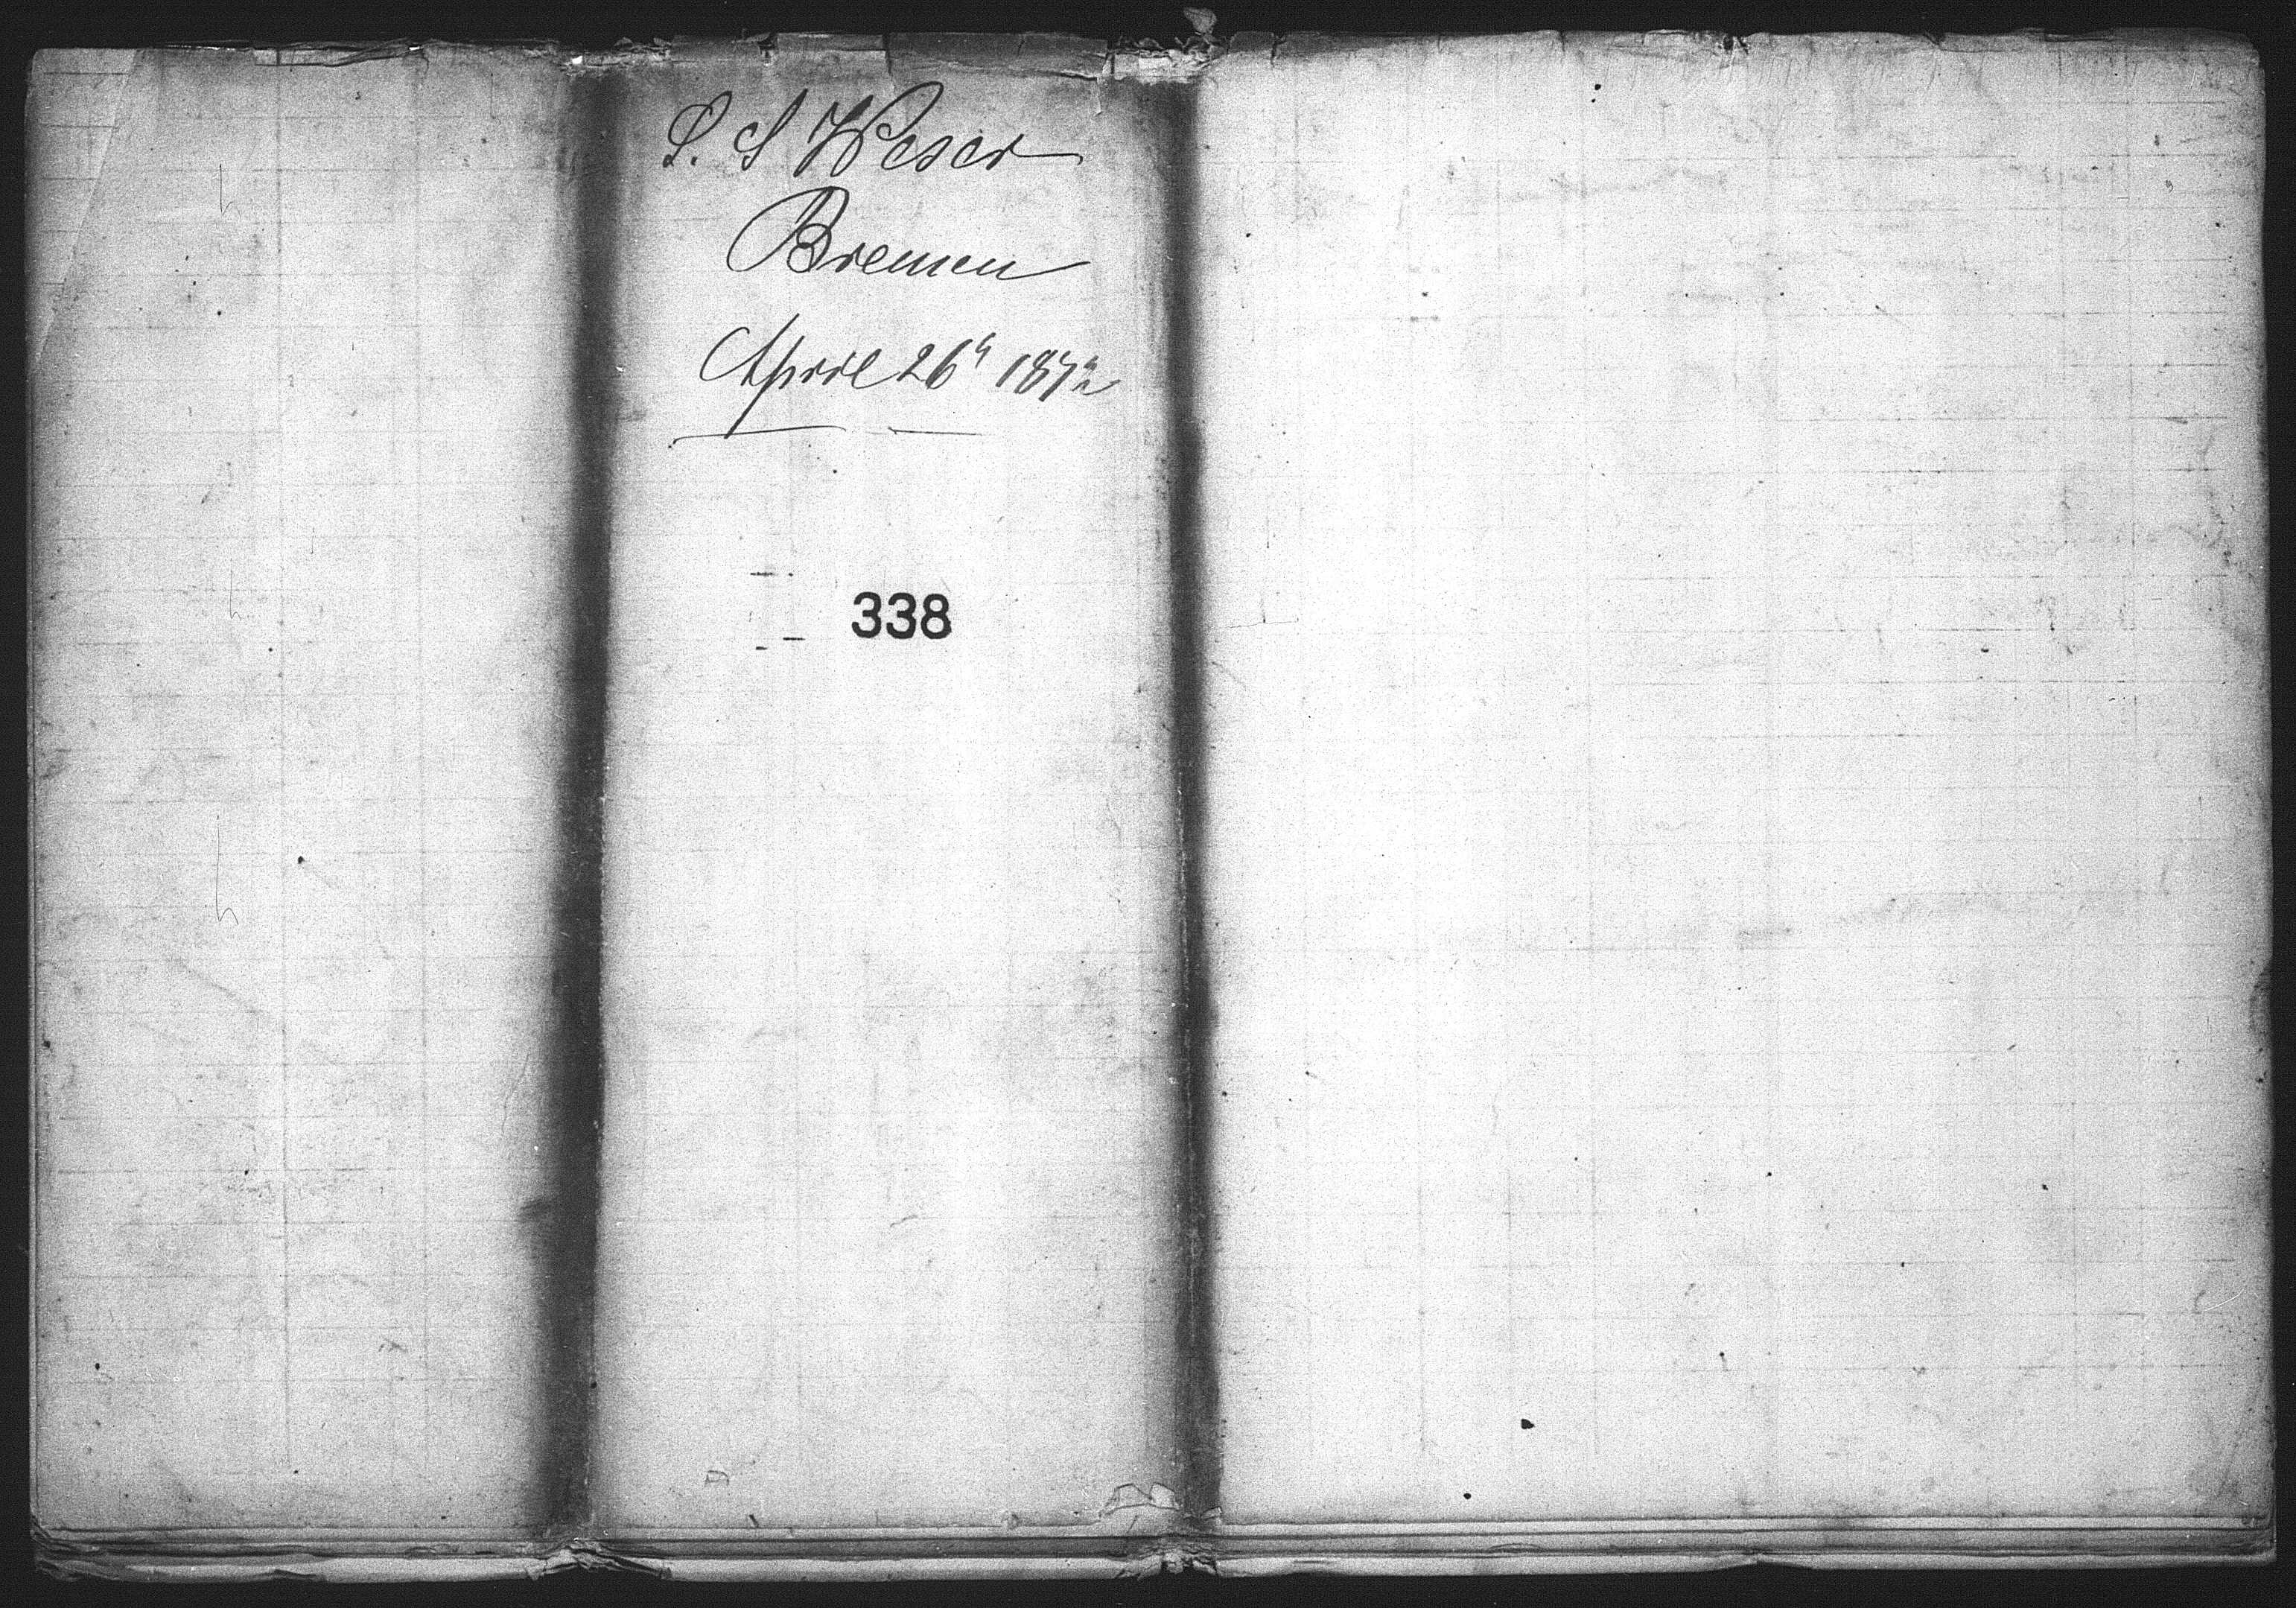 S. S Weser
Bremen
April 26" 1872
338